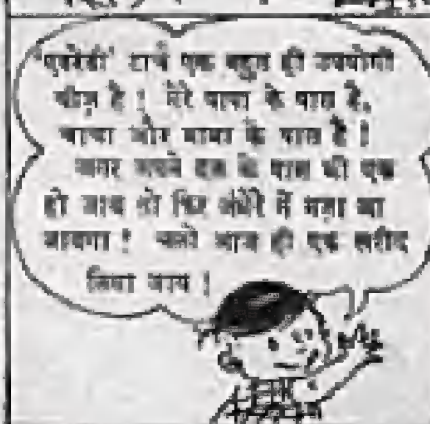 'एवरेडी' टार्च एक बहुत ही उपयोगी
चीज़ है! मेरे पापा के पास है,
चाचा और मामा के पास है!
अगर अपने दल के पास भी एक
हो जाय तो फिर अंधेरे में मज़ा आ
जायगा! चलो आज ही एक खरीद
लिया जाय!